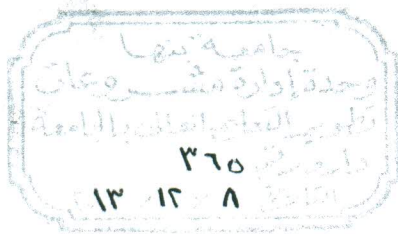 جامعة بنها
وحدة إدارة مشروعات
تطوير التعليم العالى بالجامعة
٣٦٥
٨ ١٢ ١٣